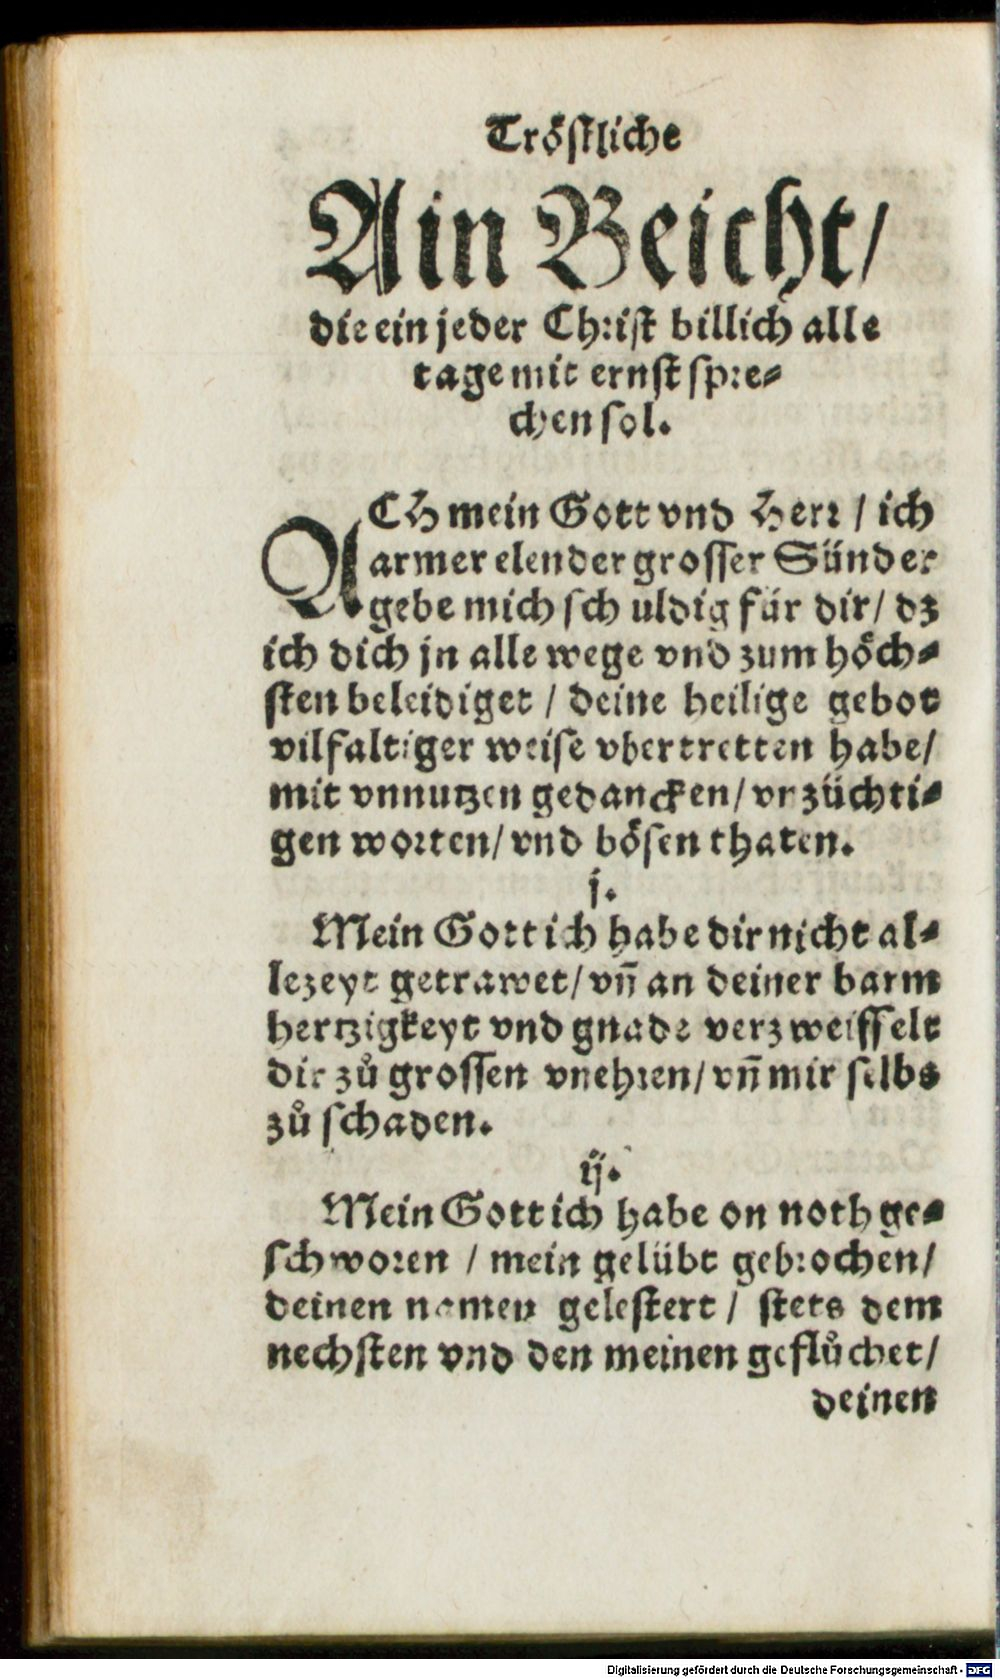 Tröſtliche
Ain Beicht/
die ein jeder Chriſt billich alle
tage mit ernſt ſpre⸗
chen ſol.
ACH mein Gott vnd Herr / ich
armer elender groſſer Sünder
gebe mich ſch uldig für dir/ dz
ich dich jn alle wege vnd zum höch⸗
ſten beleidiget / deine heilige gebot
vilfaltiger weiſe vbertretten habe/
mit vnnutzen gedancken/ vnzüchti⸗
gen worten/ vnd böſen thaten.
j.
Mein Gott ich habe dir nicht al⸗
lezeyt getrawet/ vn̄ an deiner barm
hertzigkeyt vnd gnade verzweiffelt
dir zů groſſen vnehren/ vn̄ mir ſelbs
zů ſchaden.
ij.
Mein Gott ich habe on noth ge⸗
ſchworen / mein gelübt gebrochen/
deinen namen geleſtert / ſtets dem
nechſten vnd den meinen geflůchet/
deinen
Digitalisierung gefördert durch die Deutsche Forschungsgemeinschaft - DFG